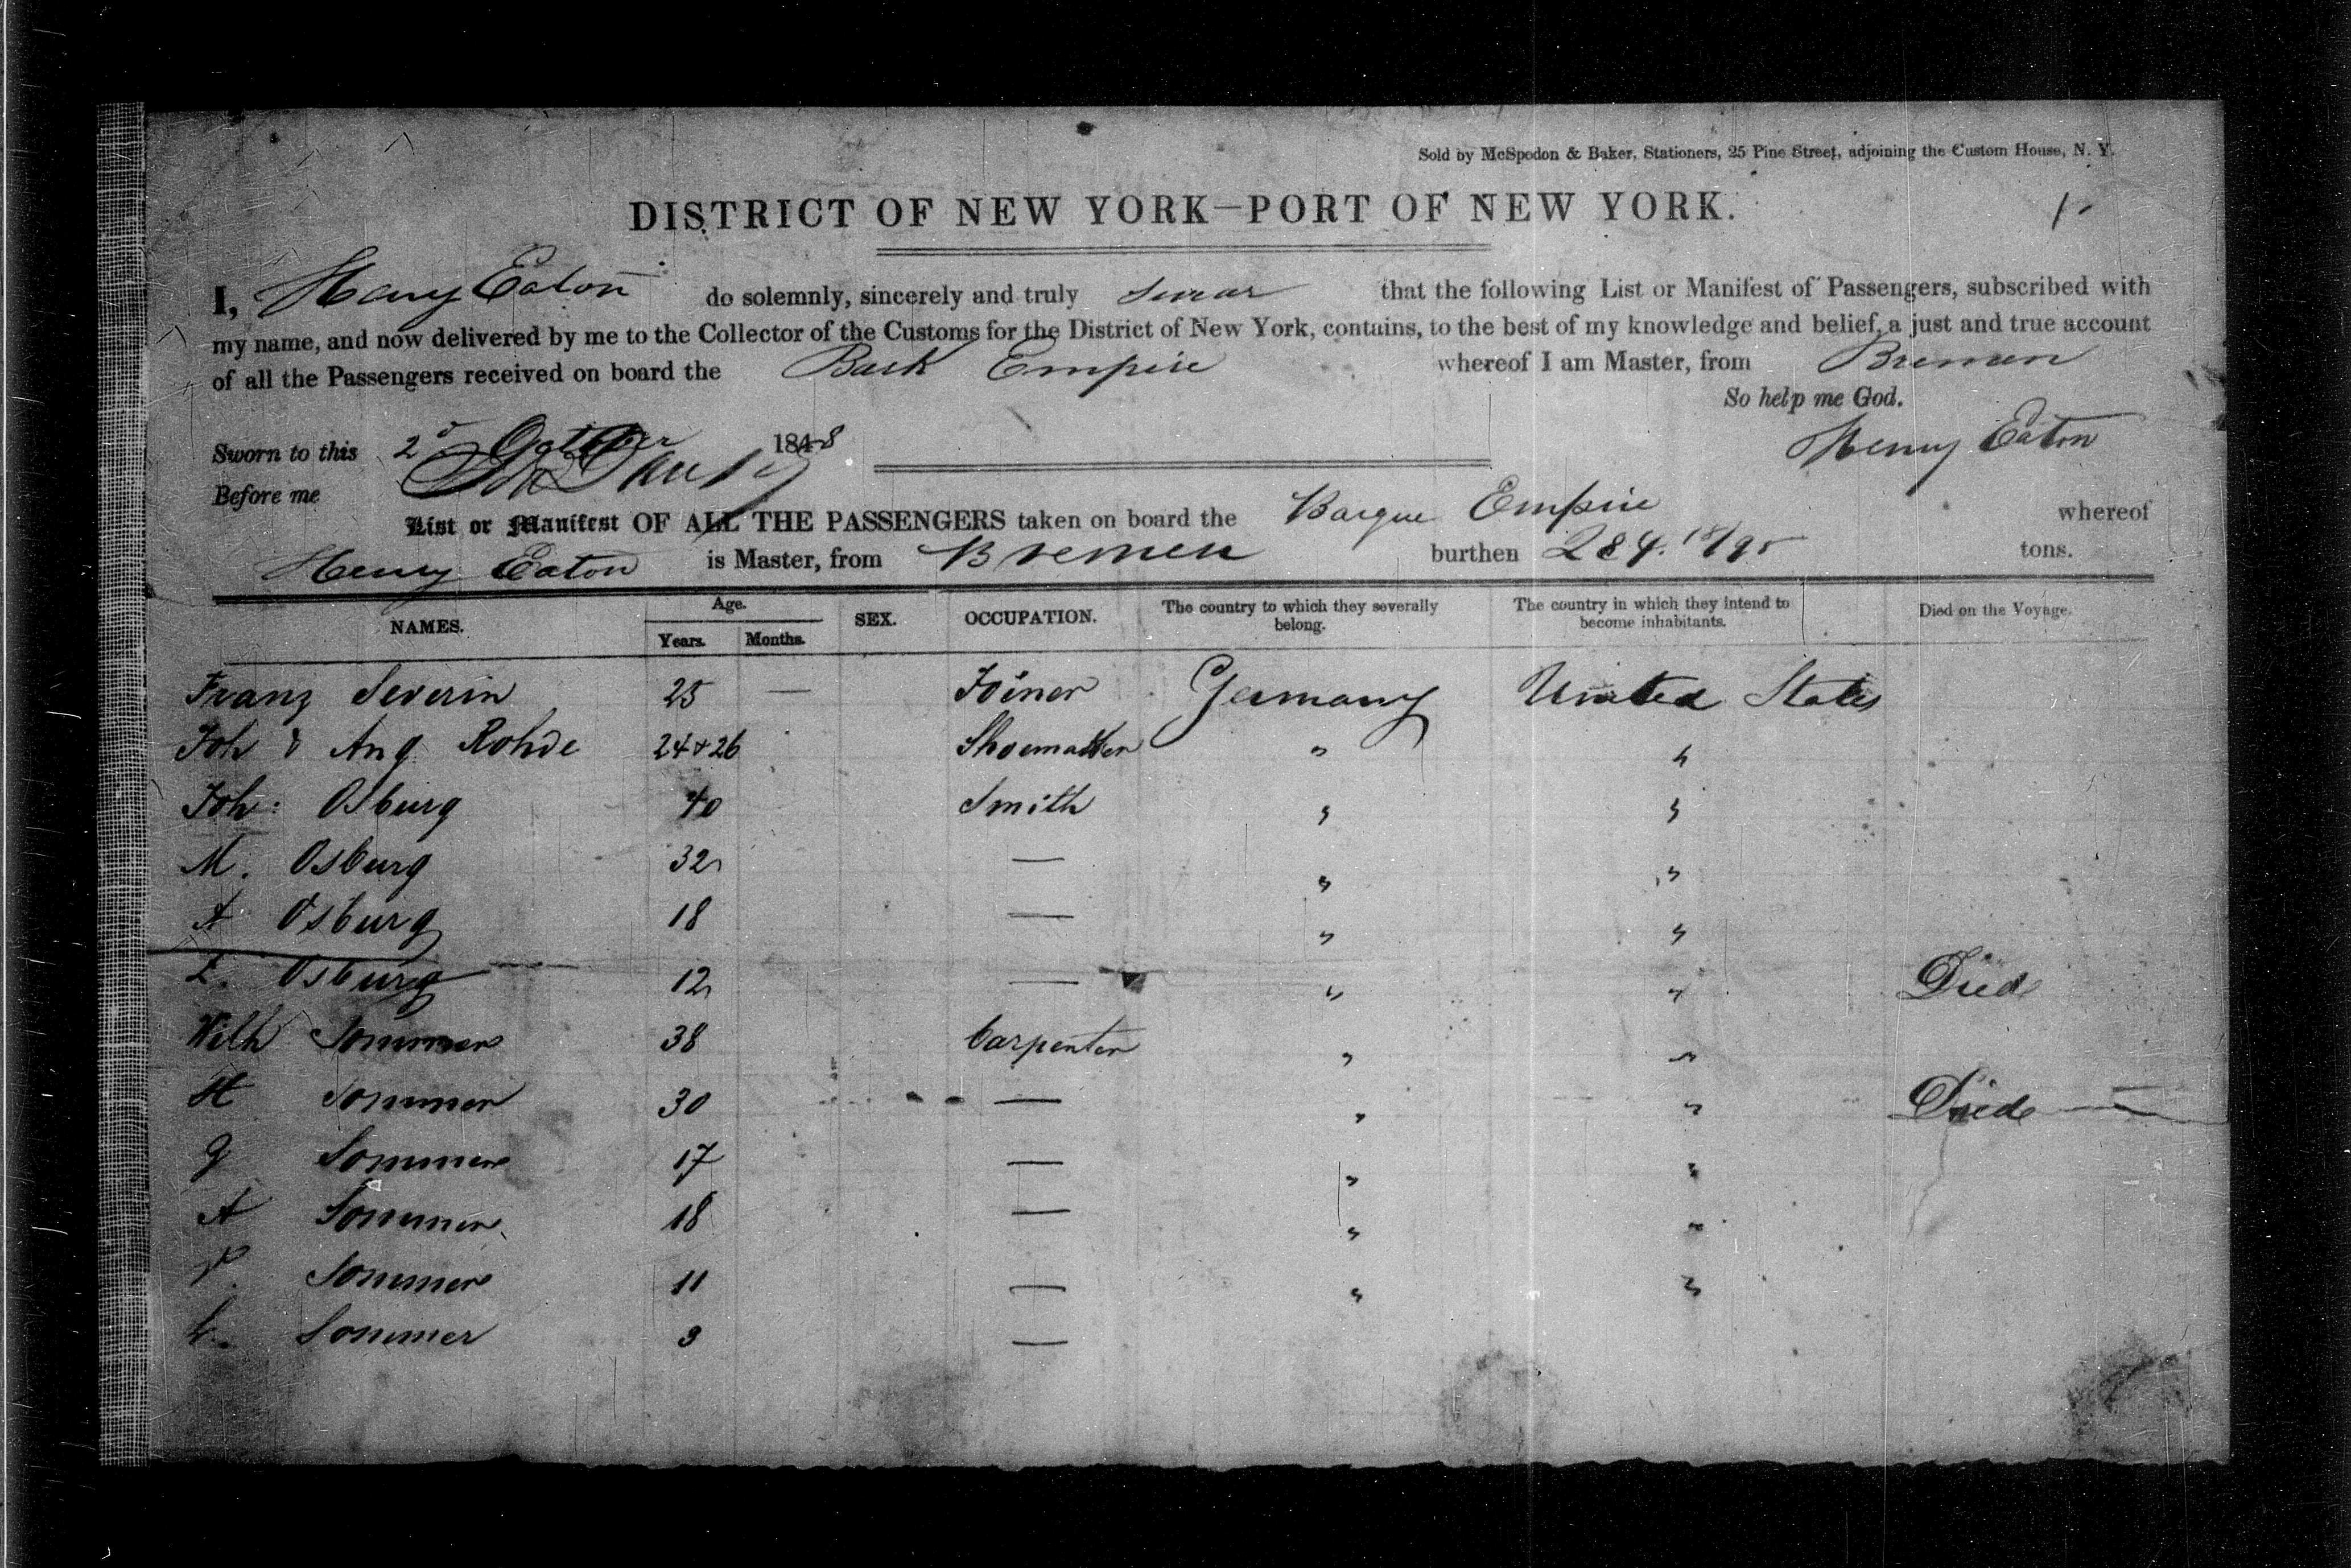 Sold by McSpedon & Baker, Stationers, 25 Pine Street, adjoining the Custom House, N. Y.
DISTRICT OF NEW YORK—PORT OF NEW YORK.
1
I, Henry Eaton do solemnly, sincerely and truly swear that the following List or Manifest of Passengers, subscribed with
my name, and now delivered by me to the Collector of the Customs for the District of New York, contains, to the best of my knowledge and belief, a just and true account
of all the Passengers received on board the Bark Empire whereof I am Master, from Bremen
So help me God.
Sworn to this 2d October 1848 Henry Eaton
Before me
List or Manifest OF ALL THE PASSENGERS taken on board the Barque Empire whereof
Henry Eaton is Master, from Bremen burthen 284. 18/95 tons.
NAMES. Age. Years. Months. SEX. OCCUPATION. The country to which they severally belong. The country in which they intend to become inhabitants. Died on the Voyage.
Franz Severin 25 — Joiner Germany United States
Joh & Ang Rohde 24 & 26 Shoemaker " "
Joh: Osburg 40 Smith " "
M. Osburg 32 — " "
A Osburg 18 — " "
Osburg 12 — " " Died
Wilh Sommer 38 Carpenter " "
H Sommer 30 — " " Died —
G Sommer 17 — " "
A Sommer 18 — " "
Sommer 11 — " "
Sommer 9 —